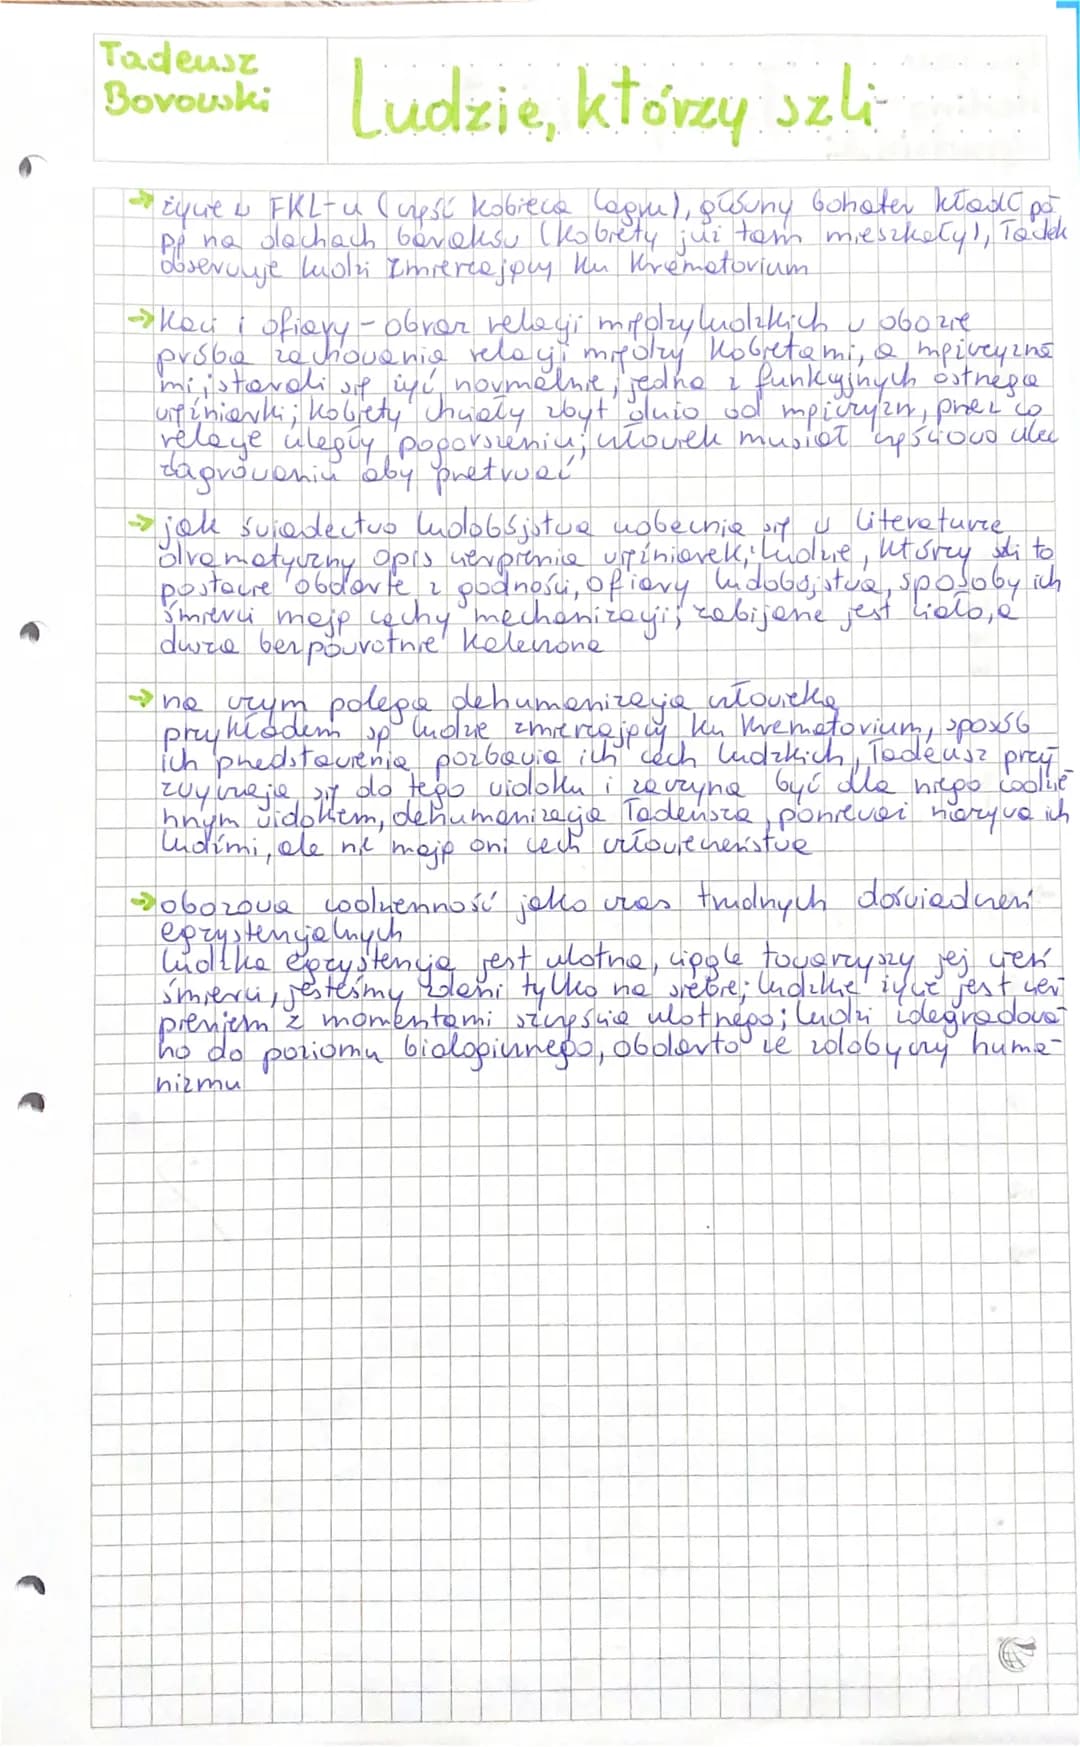 Tadeusz
Borowski
Ludzie, którzy szli
→ życie w FKL-u (część kobieca lagru), główny bohater kładł pa
pę na dachach baraków (kobiety już tam mieszkały), Tadek
obserwuje ludzi zmierzający ku krematorium
→ Kaci i ofiary - obraz relacji międzyludzkich w obozie
próba zachowania relacji między kobietami, a mężczyzna
mi; starali się żyć normalnie; jedna z funkcyjnych ostrzega
więźniarki; kobiety chciały zbyt dużo od mężczyzn, przez co
relacje uległy pogorszeniu; człowiek musiał częściowo ulec
zagrożeniu aby przetrwać
→ jak świadectwo ludobójstwa uobecnia się w literaturze
dramatyczny opis cierpienia więźniarek; ludzie, którzy szli to
postacie obdarte z godności, ofiary ludobójstwa, sposoby ich
śmierci mają cechy mechanizacji; zabijane jest ciało, a
dusza bezpowrotnie kaleczona
→ na czym polega dehumanizacja człowieka
przykładem są ludzie zmierzający ku krematorium, sposób
ich przedstawienia pozbawia ich cech ludzkich, Tadeusz przy-
zwyczaja się do tego widoku i zaczyna być dla niego codzie
nnym widokiem, dehumanizacja Tadeusza, ponieważ nazywa ich
ludźmi, ale nie mają oni cech człowieczeństwa
→ obozowa codzienność jako czas trudnych doświadczeń
egzystencjalnych
ludzka egzystencja jest ulotna, ciągle towarzyszy jej cień
śmierci, jesteśmy zdani tylko na siebie; ludzkie życie jest cier
pieniem z momentami szczęścia ulotnego; ludzi zdegradowa-
no do poziomu biologicznego, obdarto ze zdobyczy huma-
nizmu